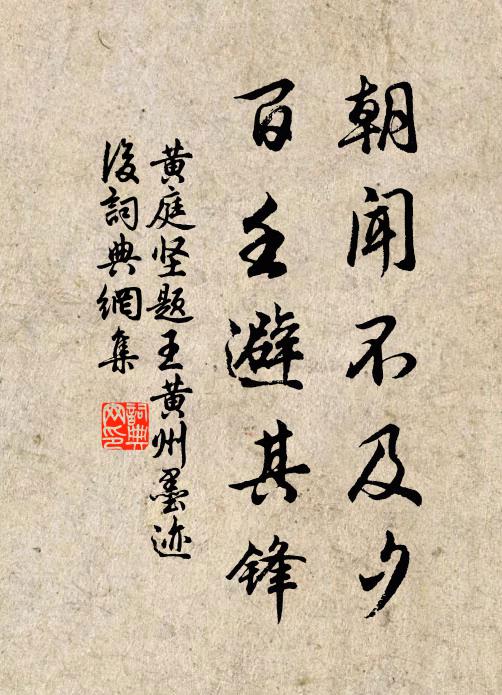 朝闻不及夕
百壬避其锋
黄庭坚题王黄州墨迹
後詞典網集
詞典
网印